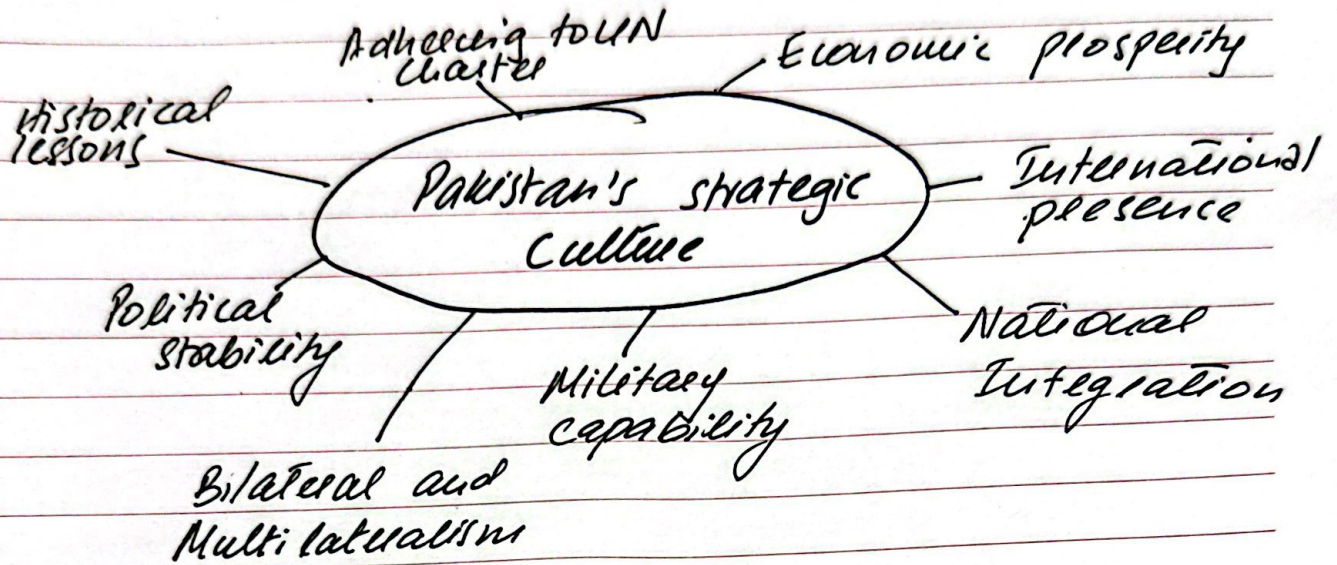 Adhering to UN
charter
Economic prosperity
Historical
lessons
Pakistan's strategic
Culture
International
presence
Political
stability
Military
capability
National
Integration
Bilateral and
Multilateralism